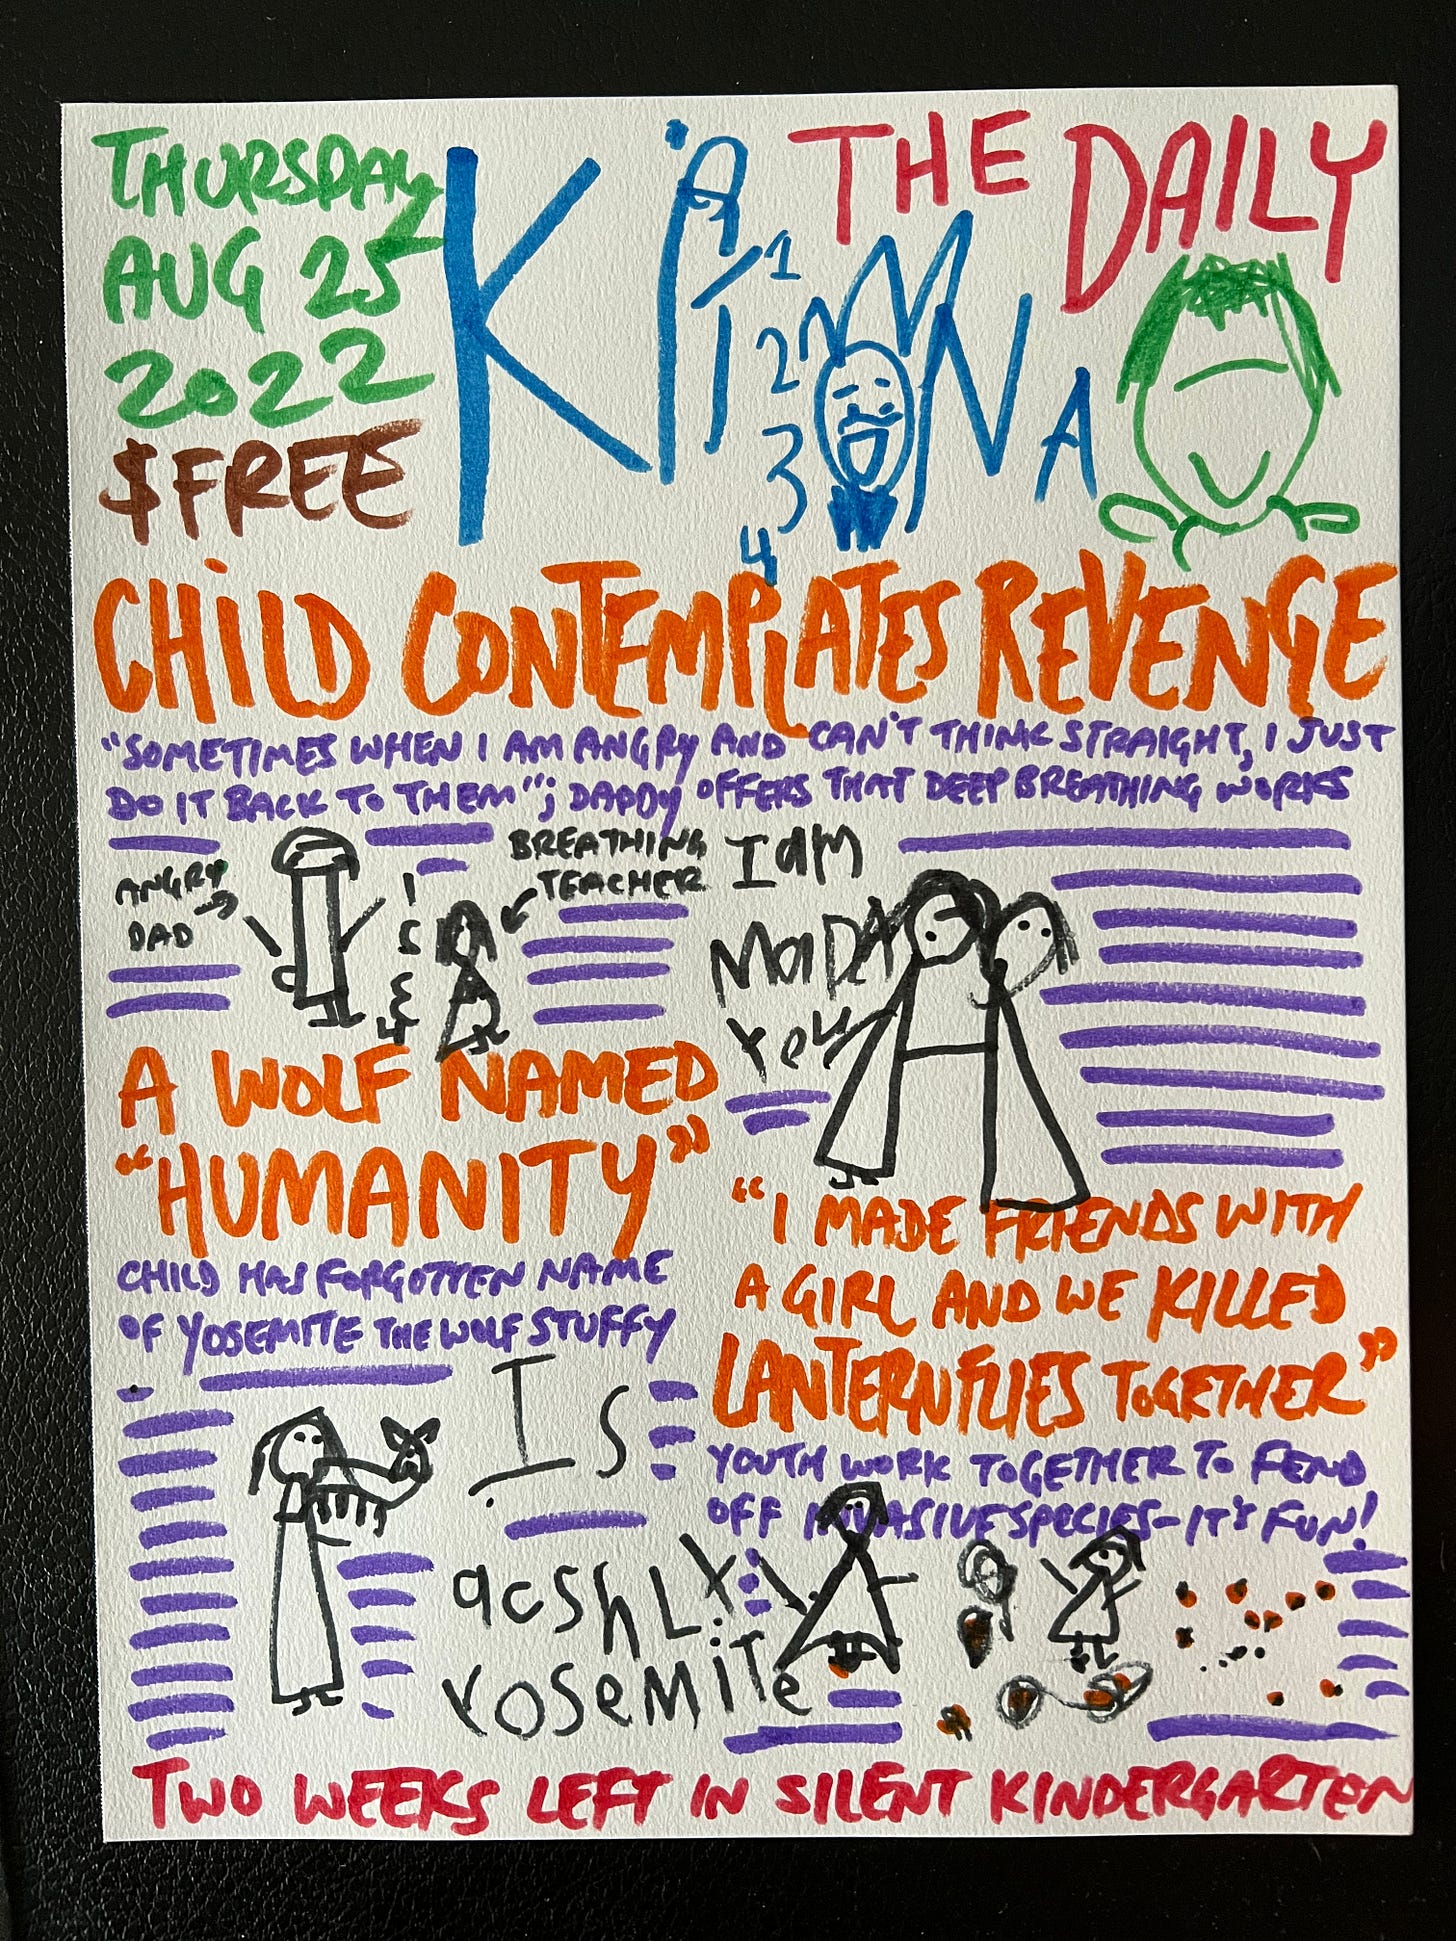 THURSDAY
AUG 25
2022
$FREE
THE DAILY
1
2
3
4
CHILD CONTEMPLATES REVENGE
"SOMETIMES WHEN I AM ANGRY AND CAN'T THINK STRAIGHT, I JUST
DO IT BACK TO THEM"; DADDY OFFERS THAT DEEP BREATHING WORKS
ANGRY
DAD
BREATHING
TEACHER
I am
MaDA
You
A WOLF NAMED
"HUMANITY"
CHILD HAS FORGOTTEN NAME
OF YOSEMITE THE WOLF STUFFY
Is
acshLY
YOSeMiTe
"I MADE FRIENDS WITH
A GIRL AND WE KILLED
LANTERNFLIES TOGETHER"
YOUTH WORK TOGETHER TO FEND
OFF INVASIVE SPECIES-IT'S FUN!
TWO WEEKS LEFT IN SILENT KINDERGARTEN